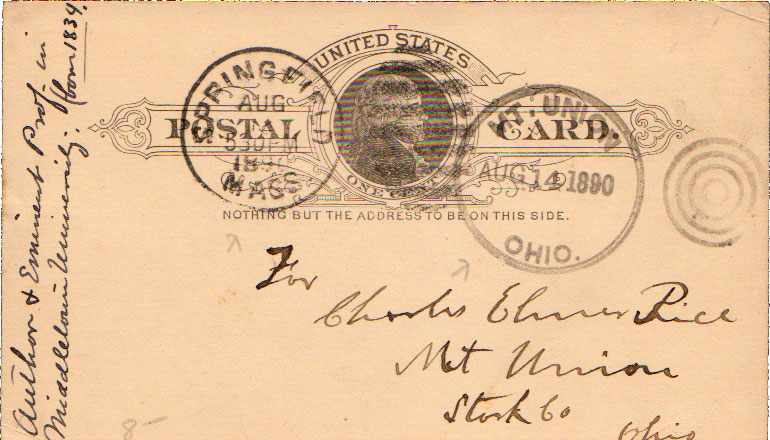 UNITED STATES
POSTAL CARD.
ONE CENT
NOTHING BUT THE ADDRESS TO BE ON THIS SIDE.
SPRINGFIELD
AUG
530PM
MASS
MT. UNION
AUG 14 1890
OHIO.
For
Charles Elmer Rice
Mt Union
Stark Co
Ohio
Author & Eminent Prof. in
Middletown University. (born 1834)
8-